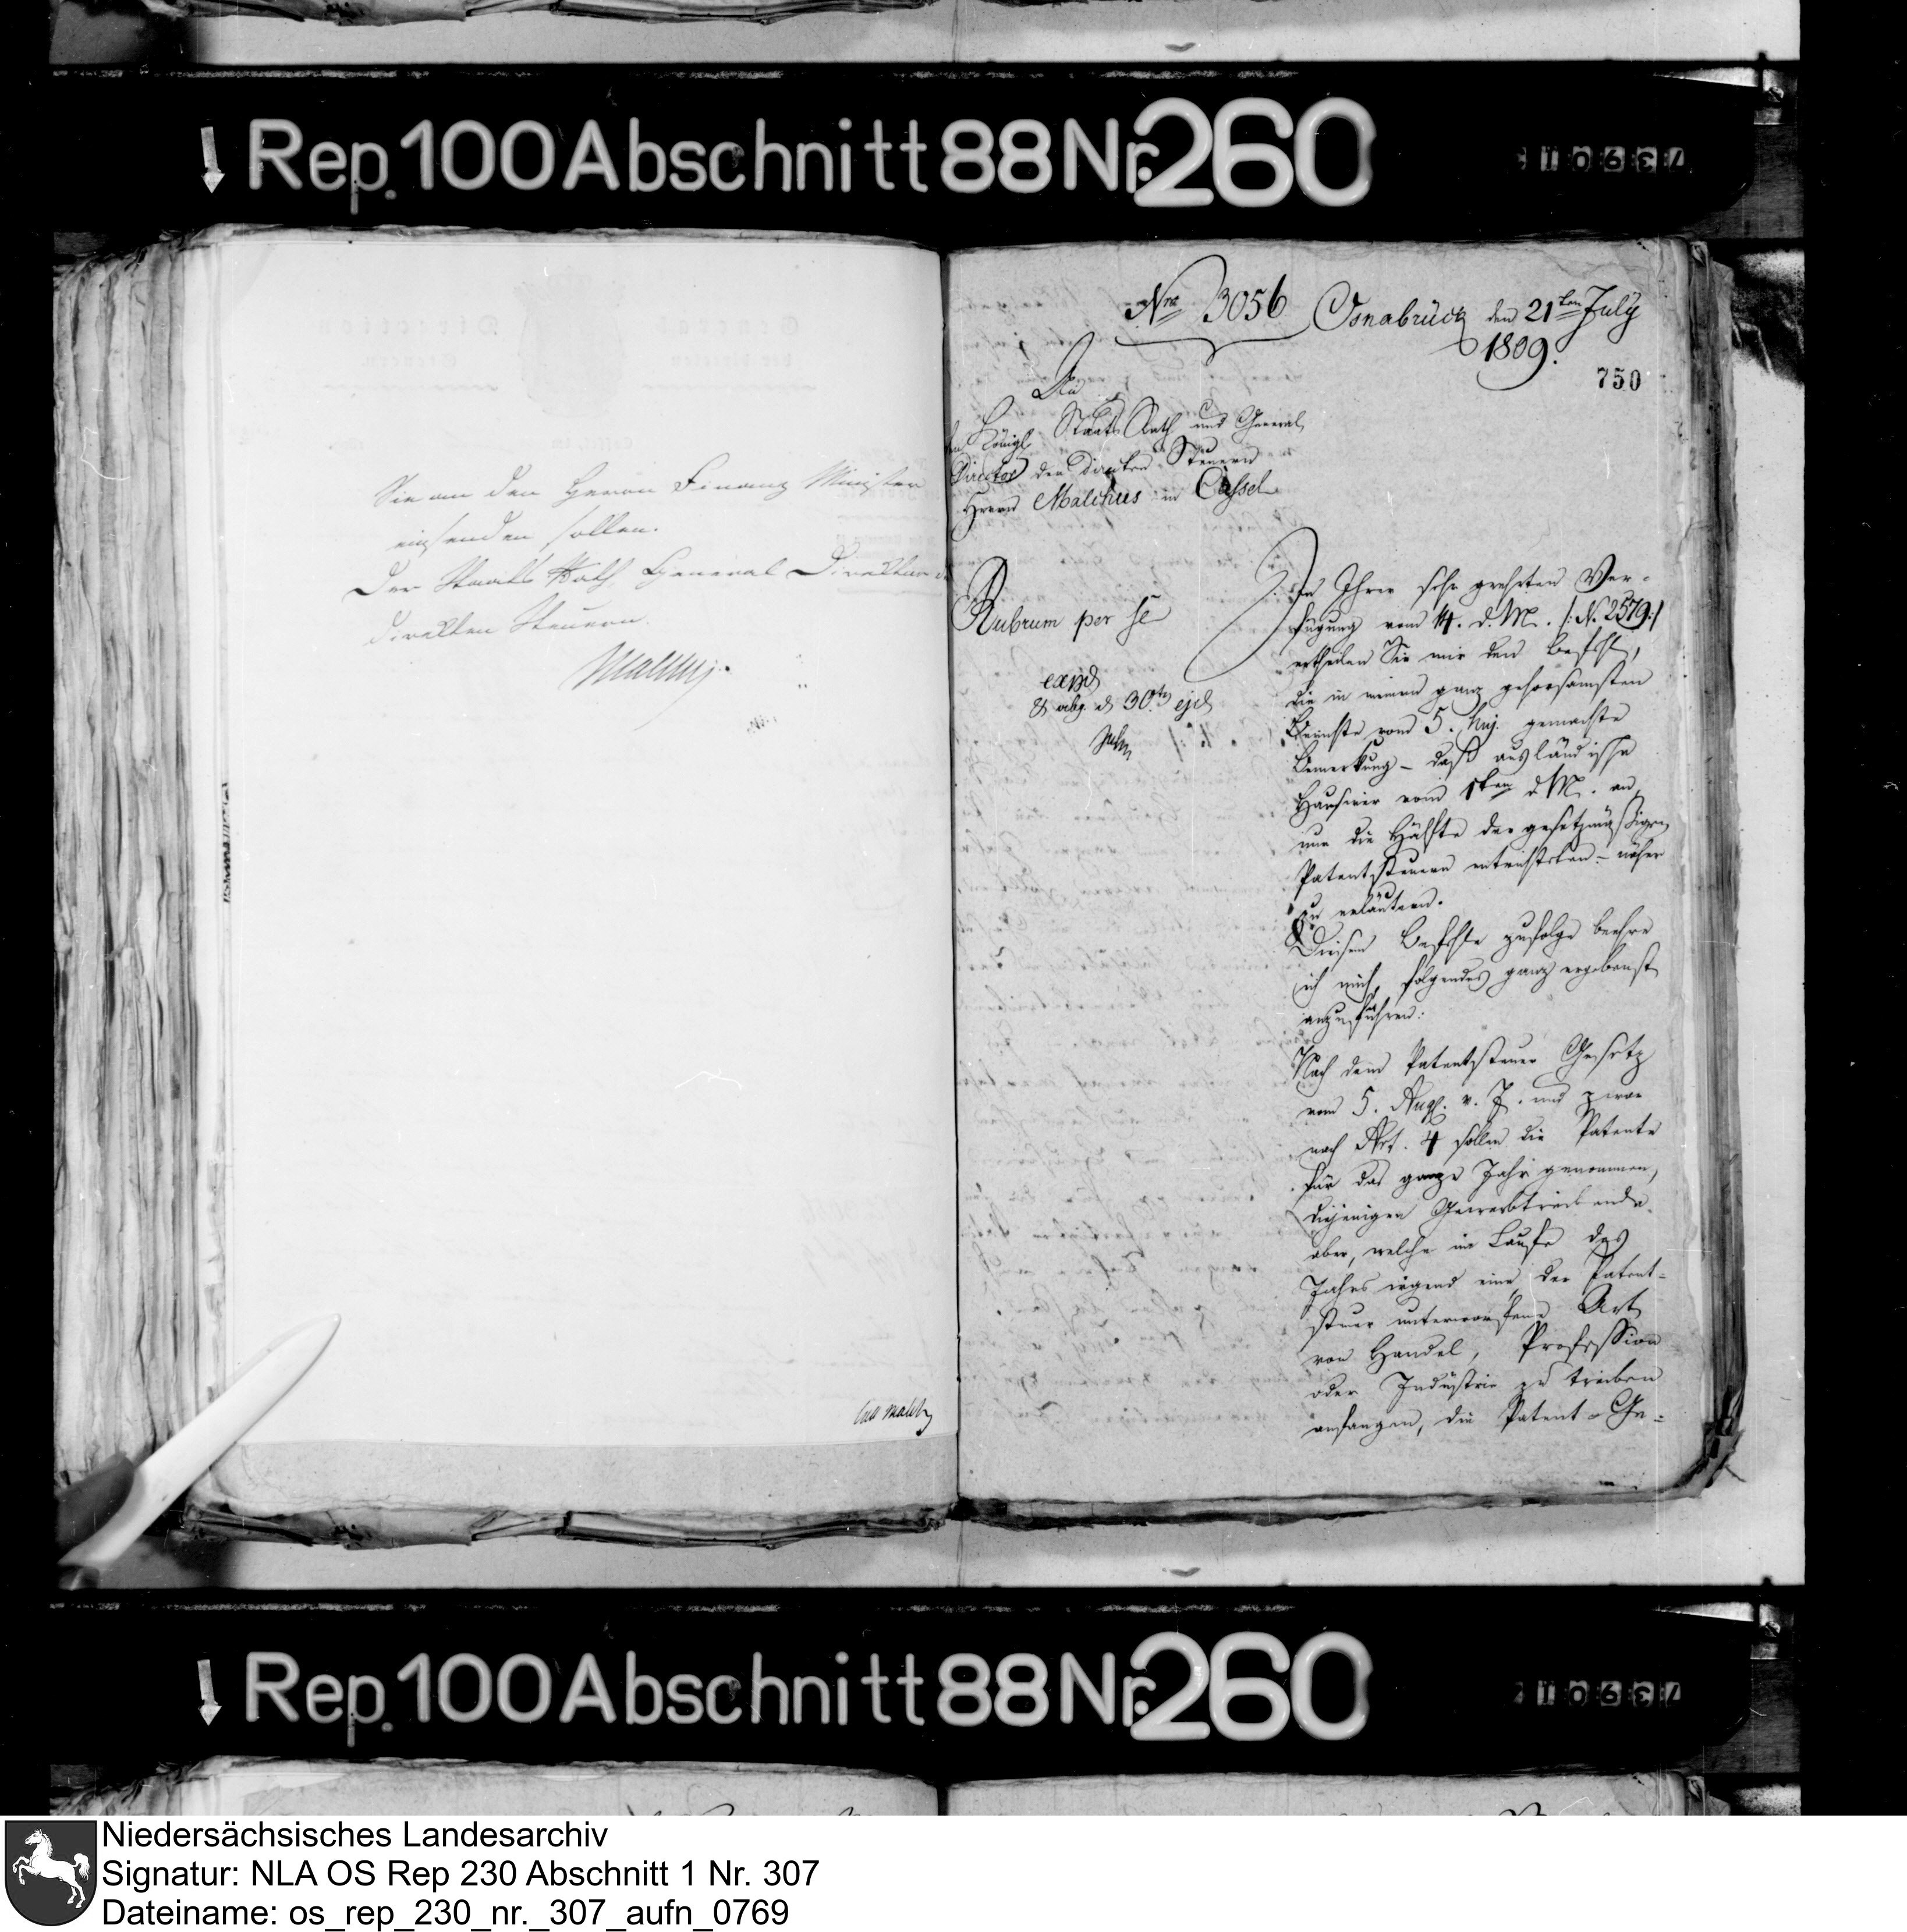 Rep. 100 Abschnitt 88 Nr. 260
Sie an den Herrn Finanz Minister
einsenden sollen.
Der Staats Rath, General Direktor d
direkten Steuern.
Malchus.
Nro 3056 Osnabrück den 21ten July
1809.
750
An
den Königl. Staats Rath und General
Director der direkten Steuern
Herrn Malchus in Cassel
Rubrum per se
exped
& abg. d 30.ten ejd
In Ihrer sehr geehrten Ver-
fügung vom 14. d. M. /: N. 2579 :/
ertheilen Sie mir den Befehl,
die in meinem ganz gehorsamsten
Berichte vom 5. huj. gemachte
Bemerkung – daß ausländische
Hausirer vom 1ten d. M. an,
nur die Hälfte der gesetzmäßigen
Patentsteuern entrichteten – näher
zu erläutern.
Diesem Befehle zufolge beehre
ich mich, folgendes ganz ergebenst
anzuführen:
Nach dem Patentsteuer Gesetz
vom 5. Aug. v. J. und zwar
nach Art. 4 sollen die Patente
für das ganze Jahr genommen,
diejenigen Gewerbtreibende
aber, welche im Laufe des
Jahrs irgend eine, der Patent-
steuer unterworfene Art
von Handel, Profession
oder Industrie zu treiben
anfangen, die Patent-Ge-
Rep. 100 Abschnitt 88 Nr. 260
Niedersächsisches Landesarchiv
Signatur: NLA OS Rep 230 Abschnitt 1 Nr. 307
Dateiname: os_rep_230_nr._307_aufn_0769